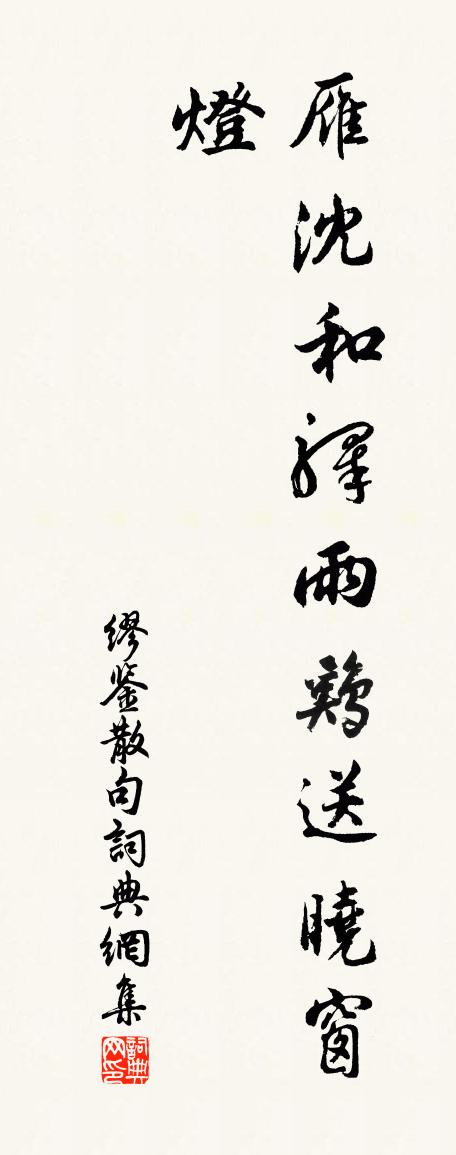 雁沈和驛雨鷄送曉窗
燈
缪鉴散句詞典網集
詞典网印